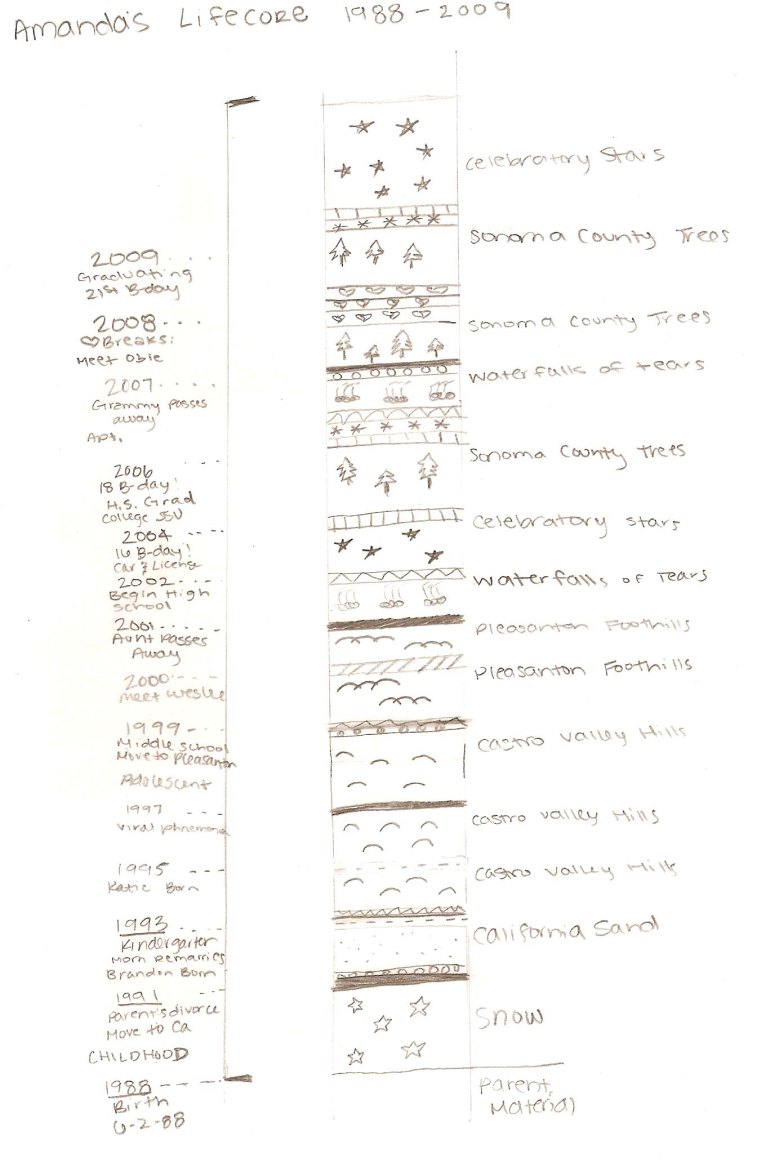 Amanda's Lifecore 1988-2009
Celebratory Stars
Sonoma County Trees
2009
Graduating
21st B-day
Sonoma County Trees
2008
♡Breaks:
Meet Obie
Waterfalls of tears
2007
Grammy Passes
away
Apt.
Sonoma County Trees
2006
18 B-day!
H.S. Grad
College SSU
Celebratory Stars
2004
16 B-day!
Car & License
Waterfalls of Tears
2002
Begin High
School
Pleasanton Foothills
2001
Aunt Passes
Away
Pleasanton Foothills
2000
Meet Weslee
Castro Valley Hills
1999
Middle School
Move to Pleasanton
Adolescent
Castro Valley Hills
1997
Viral phnemonia
Castro Valley Hills
1995
Katie Born
California Sand
1993
Kindergarter
Mom Remarries
Brandon Born
1991
Parent's divorce
Move to Ca
Snow
CHILDHOOD
1988
Birth
6-2-88
Parent
Material